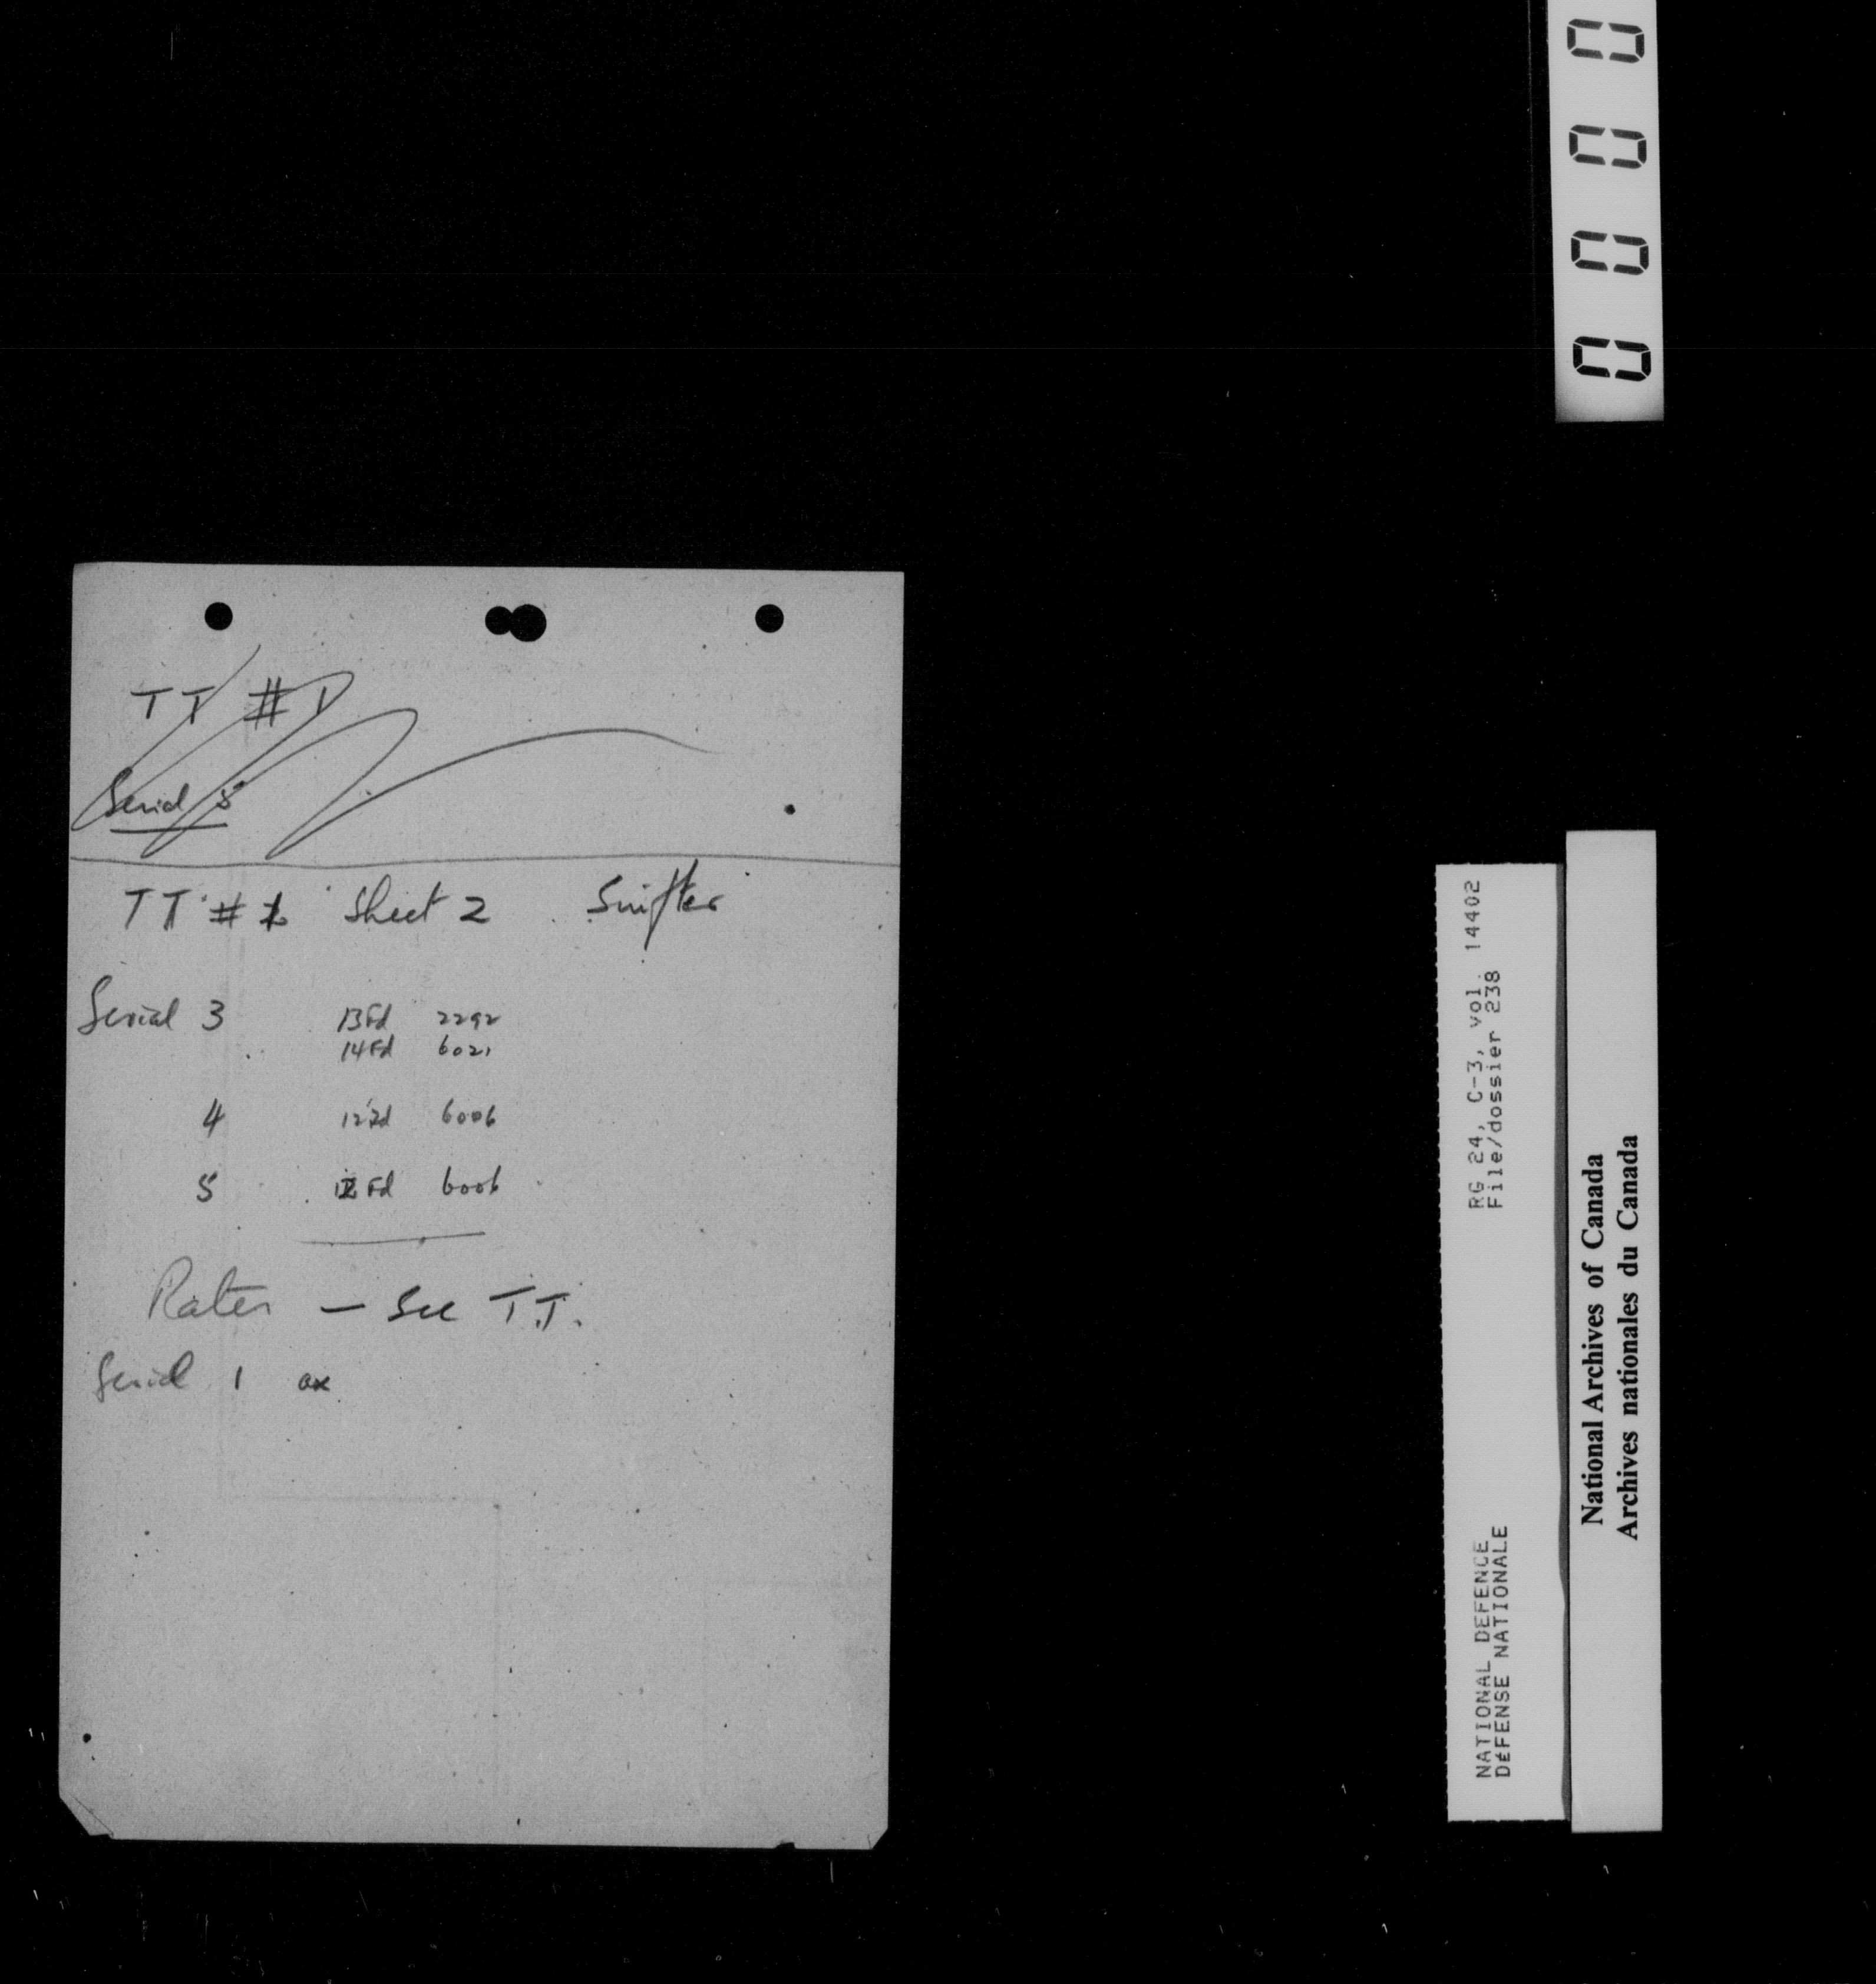 TT #1
Serial 5
TT #1 Sheet 2 Swifter
Serial 3 13 Fd 2292
14 Fd 6021
4 12 Fd 6006
5 12 Fd 6006
Rates — See T.T.
Serial 1 ax
0000
RG 24, C-3, vol. 14402
File/dossier 238
NATIONAL DEFENCE
DÉFENSE NATIONALE
National Archives of Canada
Archives nationales du Canada